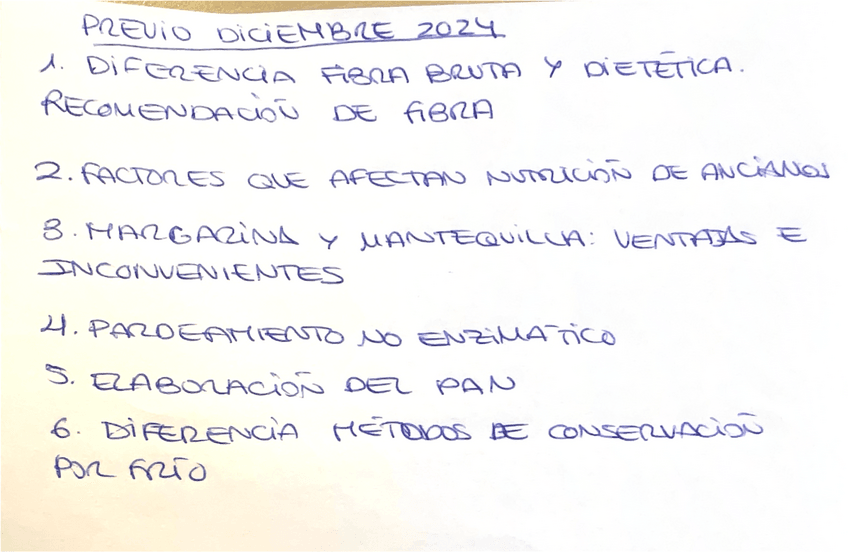 PREVIO DICIEMBRE 2024
1. DIFERENCIA FIBRA BRUTA Y DIETÉTICA.
RECOMENDACIÓN DE FIBRA
2. FACTORES QUE AFECTAN NUTRICIÓN DE ANCIANOS
3. MARGARINA Y MANTEQUILLA: VENTAJAS E
INCONVENIENTES
4. PARDEAMIENTO NO ENZIMÁTICO
5. ELABORACIÓN DEL PAN
6. DIFERENCIA MÉTODOS DE CONSERVACIÓN
POR FRÍO